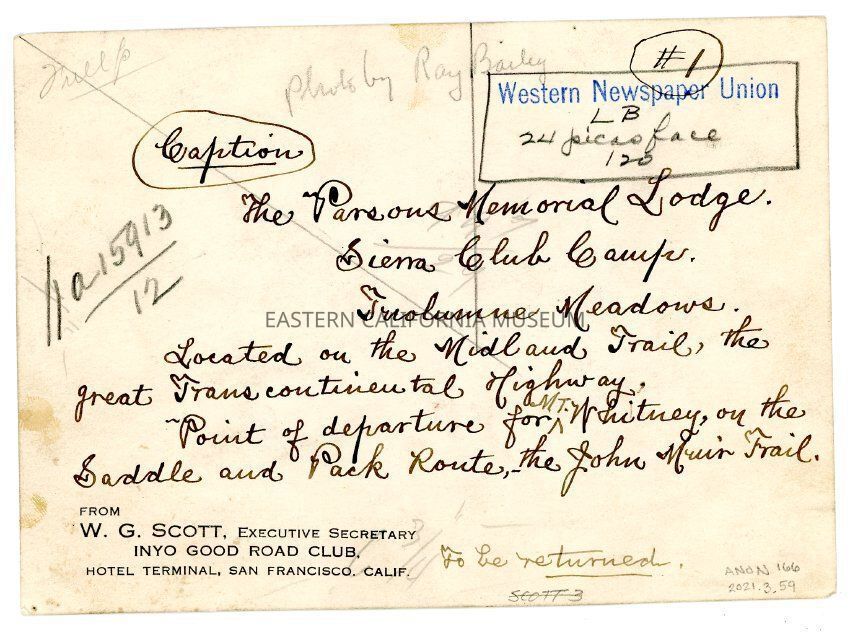 Photo by Ray Bailey
#1
Western Newspaper Union
LB
24 picas face
120
Caption
The Parsons Memorial Lodge.
Sierra Club Camp.
Tuolumne Meadows.
EASTERN CALIFORNIA MUSEUM
11a15913
12
Located on the Midland Trail, the
great Transcontinental Highway.
Point of departure for Mt. Whitney, on the
Saddle and Pack Route, the John Muir Trail.
FROM
W. G. SCOTT, EXECUTIVE SECRETARY
INYO GOOD ROAD CLUB,
HOTEL TERMINAL, SAN FRANCISCO, CALIF.
To be returned.
SCOTT 3
ANON 166
2021.3.59